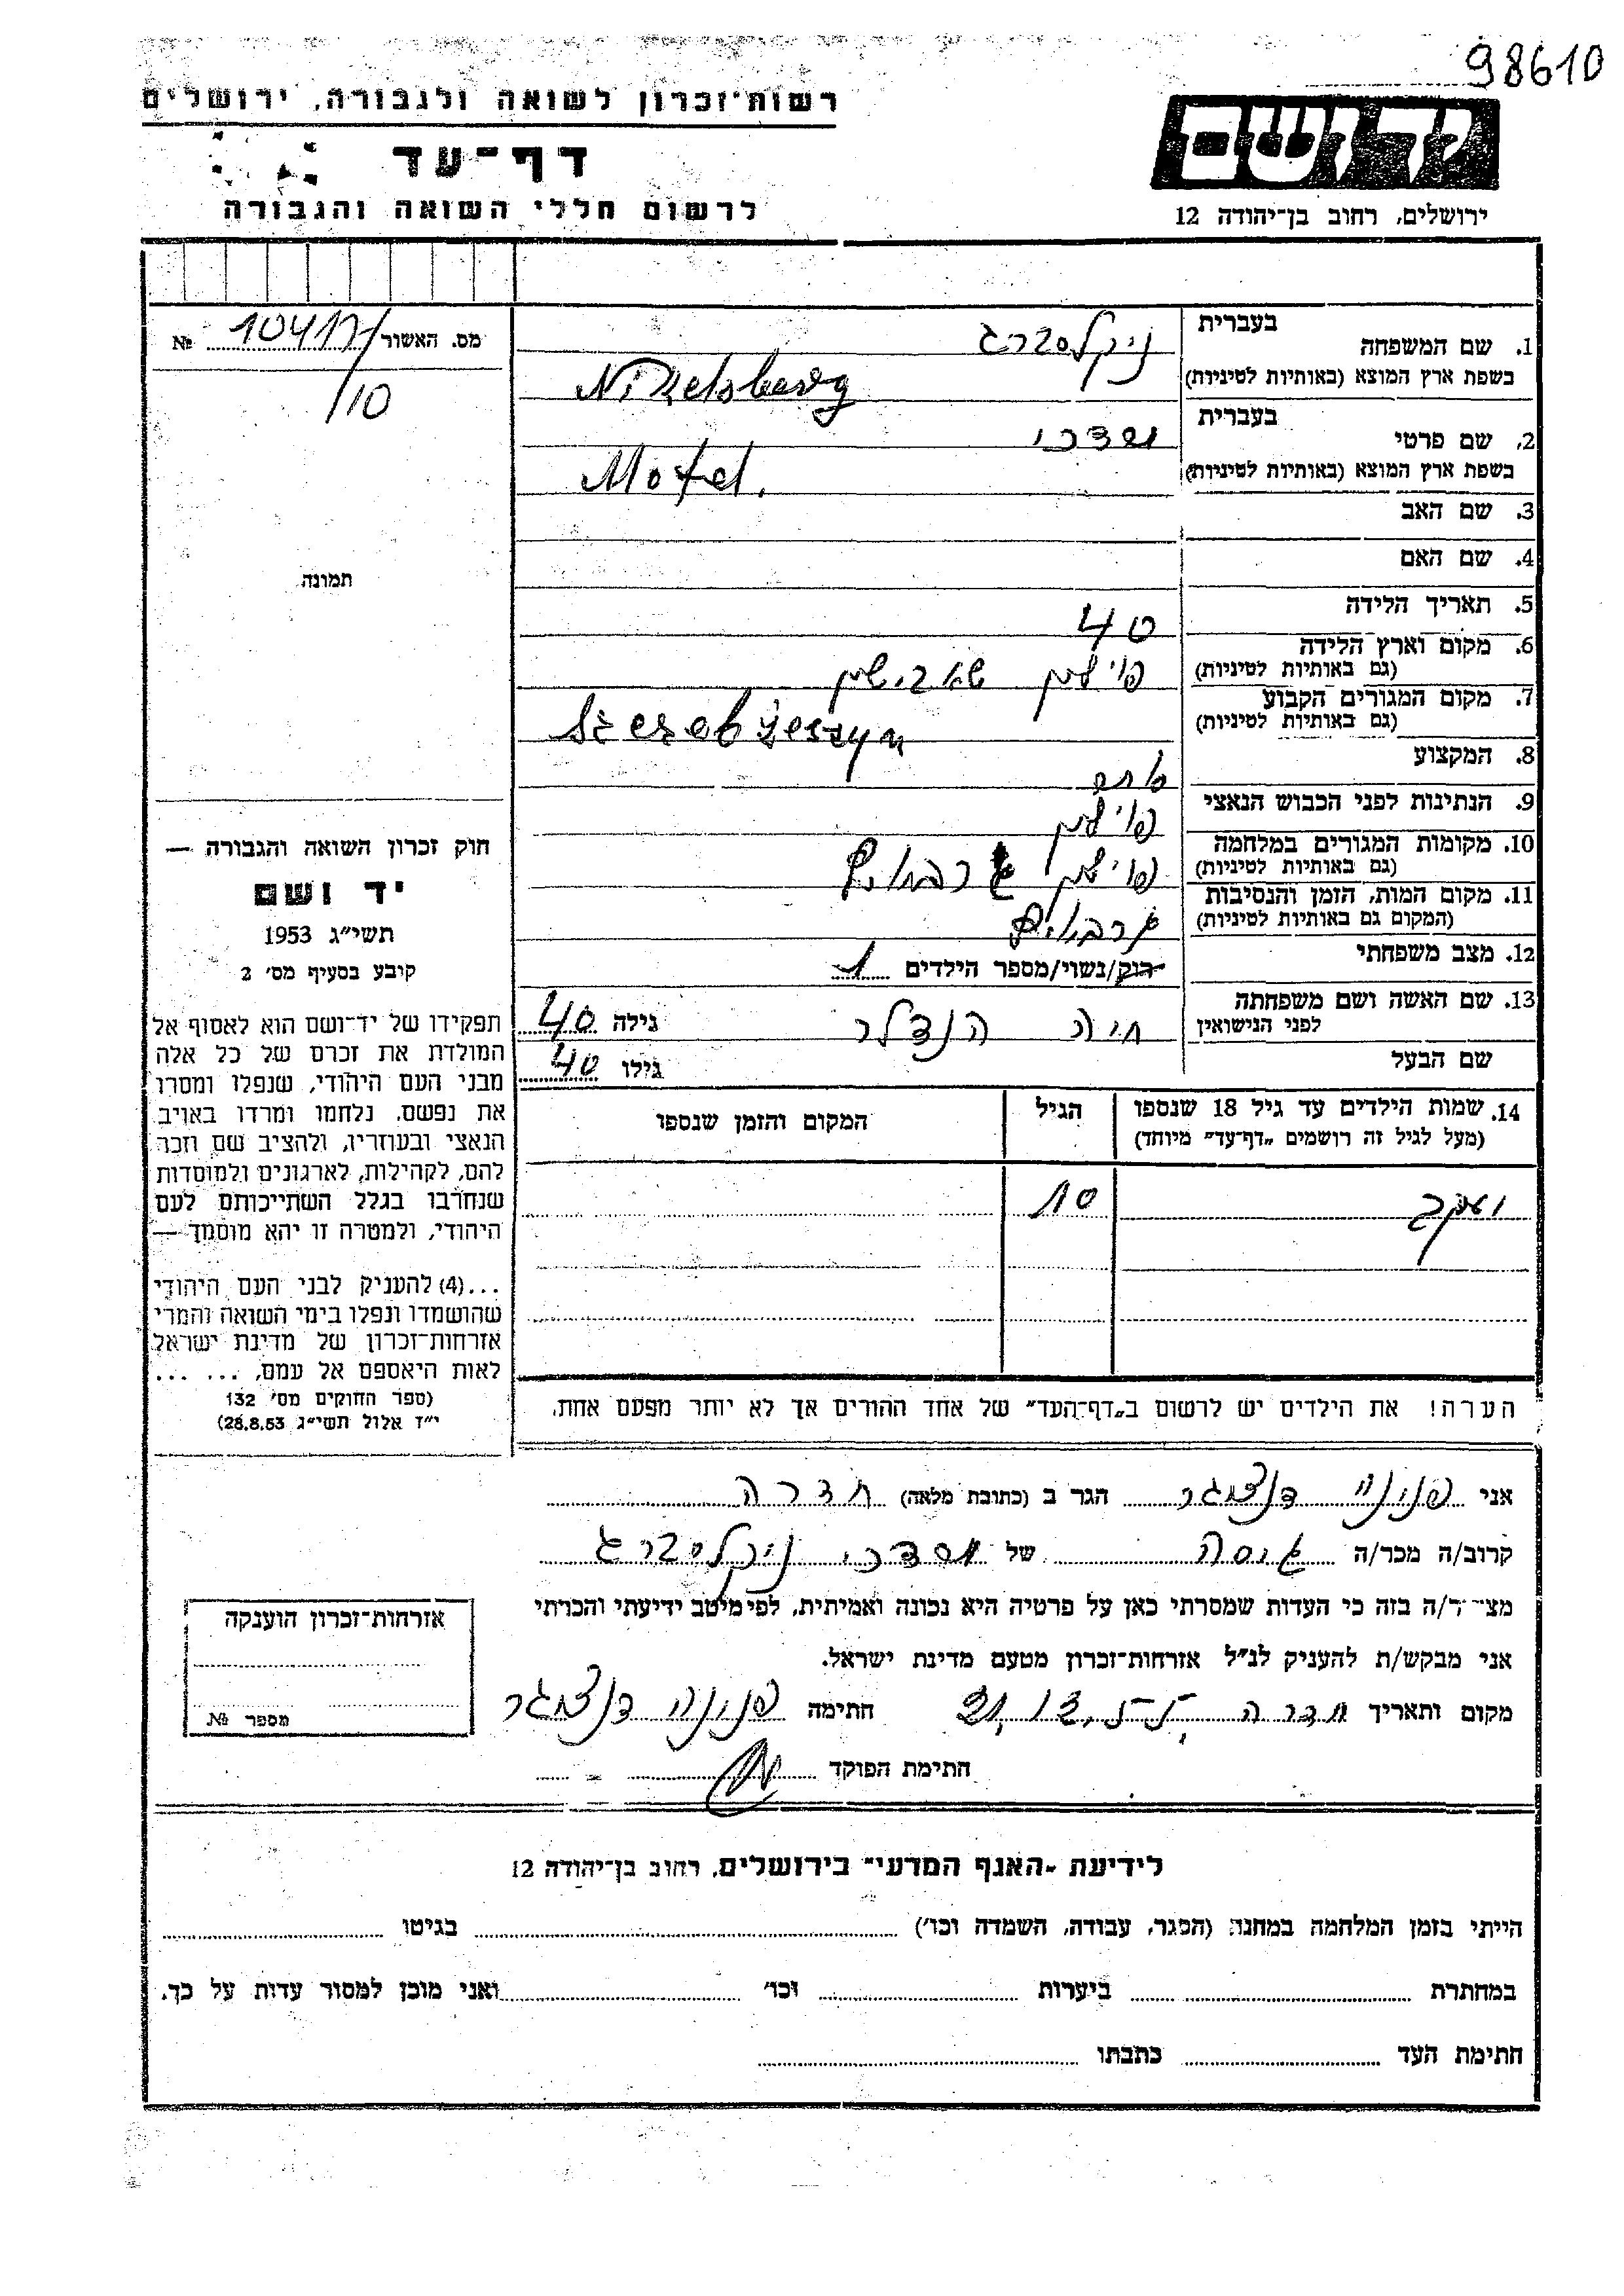 98610
רשות־זכרון לשואה ולגבורה, ירושלים
יד ושם
דף־עד
לרשום חללי השואה והגבורה
ירושלים, רחוב בן־יהודה 12
מס. האשור 10417/ №
/10
תמונה
בעברית
1. שם המשפחה ניקלסברג
בשפת ארץ המוצא (באותיות לטיניות) Nikelsberg
בעברית
2. שם פרטי מרדכי
בשפת ארץ המוצא (באותיות לטיניות) Motel.
3. שם האב
4. שם האם
5. תאריך הלידה 40
6. מקום וארץ הלידה
(גם באותיות לטיניות) פוילין
7. מקום המגורים הקבוע
(גם באותיות לטיניות)
8. המקצוע
9. הנתינות לפני הכבוש הנאצי פוילין
10. מקומות המגורים במלחמה
(גם באותיות לטיניות) פוילין
11. מקום המות, הזמן והנסיבות
(המקום גם באותיות לטיניות)
12. מצב משפחתי רוק/נשוי/מספר הילדים 1
13. שם האשה ושם משפחתה
לפני הנישואין חיה הנדלר גילה 40
שם הבעל גילו 40
14. שמות הילדים עד גיל 18 שנספו
(מעל לגיל זה רושמים „דף־עד" מיוחד)
הגיל
המקום והזמן שנספו
יעקב 10
הערה! את הילדים יש לרשום ב„דף־העד" של אחד ההורים אך לא יותר מפעם אחת.
חוק זכרון השואה והגבורה —
יד ושם
תשי"ג 1953
קובע בסעיף מס' 2
תפקידו של יד־ושם הוא לאסוף אל
המולדת את זכרם של כל אלה
מבני העם היהודי, שנפלו ומסרו
את נפשם, נלחמו ומרדו באויב
הנאצי ובעוזריו, ולהציב שם וזכר
להם, לקהילות, לארגונים ולמוסדות
שנחרבו בגלל השתייכותם לעם
היהודי, ולמטרה זו יהא מוסמך —
...(4) להעניק לבני העם היהודי
שהושמדו ונפלו בימי השואה והמרי
אזרחות־זכרון של מדינת ישראל
לאות היאספם אל עמם. ... ...
(ספר החוקים מס' 132
י"ז אלול תשי"ג 28.8.53)
אני פנינה דנציגר הגר ב (כתובת מלאה) חדרה
קרוב/ה מכר/ה גיסה של מרדכי ניקלסברג
מצהיר/ה בזה כי העדות שמסרתי כאן על פרטיה היא נכונה ואמיתית, לפי מיטב ידיעתי והכרתי
אני מבקש/ת להעניק לנ"ל אזרחות־זכרון מטעם מדינת ישראל.
מקום ותאריך חדרה חתימה פנינה דנציגר
חתימת הפוקד
אזרחות־זכרון הוענקה
מספר №
לידיעת „האגף המדעי" בירושלים, רחוב בן־יהודה 12
הייתי בזמן המלחמה במחנה (הסגר, עבודה, השמדה וכו') בגיטו
במחתרת ביערות וכו' ואני מוכן למסור עדות על כך.
חתימת העד כתבתו